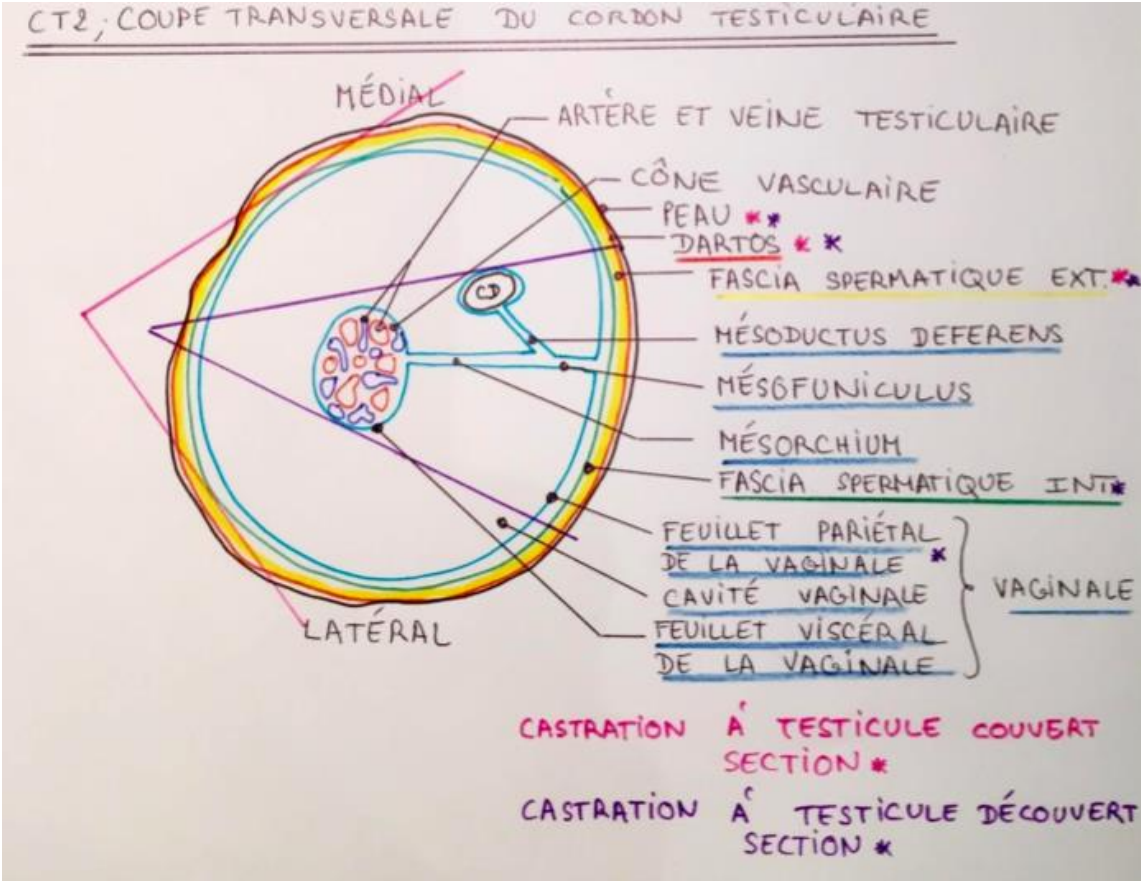 CT2; COUPE TRANSVERSALE DU CORDON TESTICULAIRE
MÉDIAL
ARTÈRE ET VEINE TESTICULAIRE
CÔNE VASCULAIRE
PEAU **
DARTOS * *
FASCIA SPERMATIQUE EXT.**
CD
MÉSODUCTUS DEFERENS
MÉSOFUNICULUS
MÉSORCHIUM
FASCIA SPERMATIQUE INT*
FEUILLET PARIÉTAL
DE LA VAGINALE *
CAVITÉ VAGINALE
VAGINALE
FEUILLET VISCÉRAL
DE LA VAGINALE
LATÉRAL
CASTRATION À TESTICULE COUVERT
SECTION *
CASTRATION À TESTICULE DÉCOUVERT
SECTION *